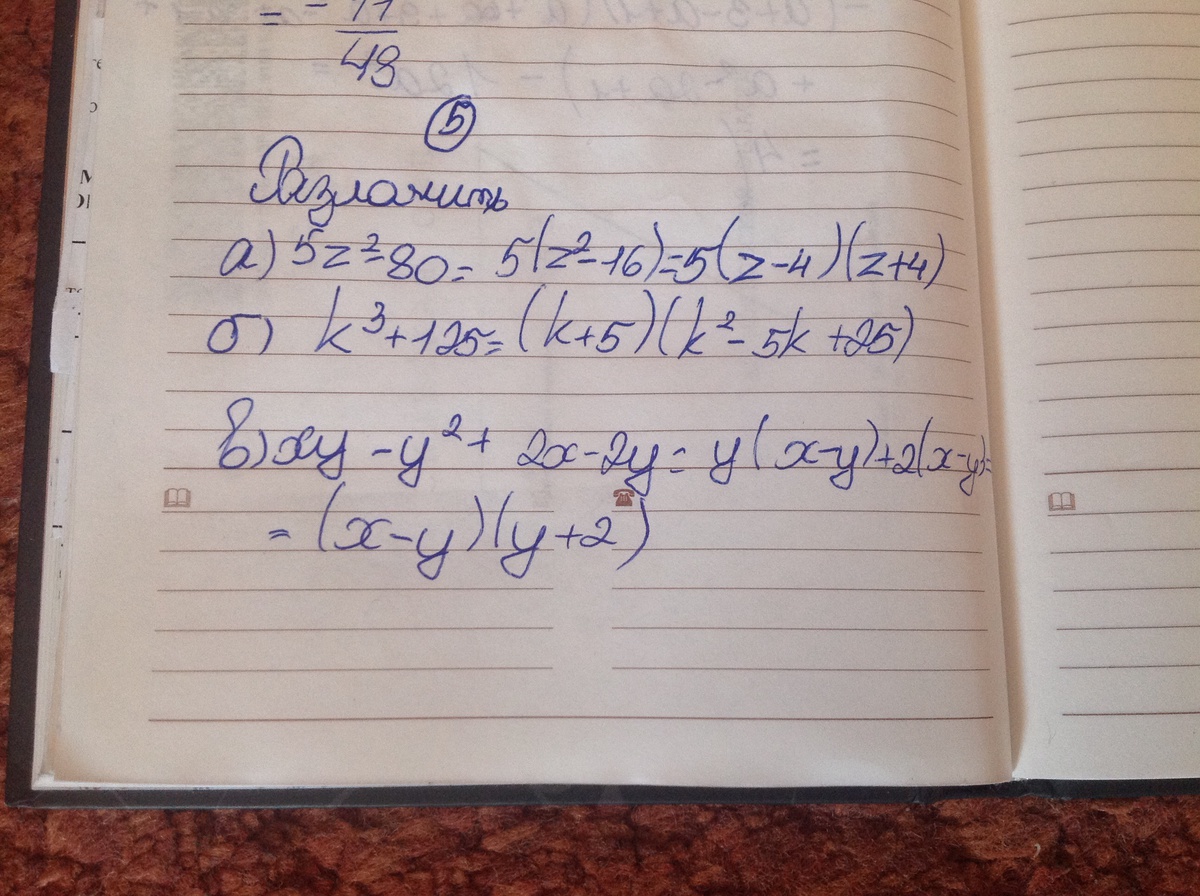 = - 11/48
5
Разложить
а) 5z²-80= 5(z²-16)=5(z-4)(z+4)
б) k³+125=(k+5)(k²-5k+25)
в) xy-y²+ 2x-2y= y(x-y)+2(x-y)=
= (x-y)(y+2)